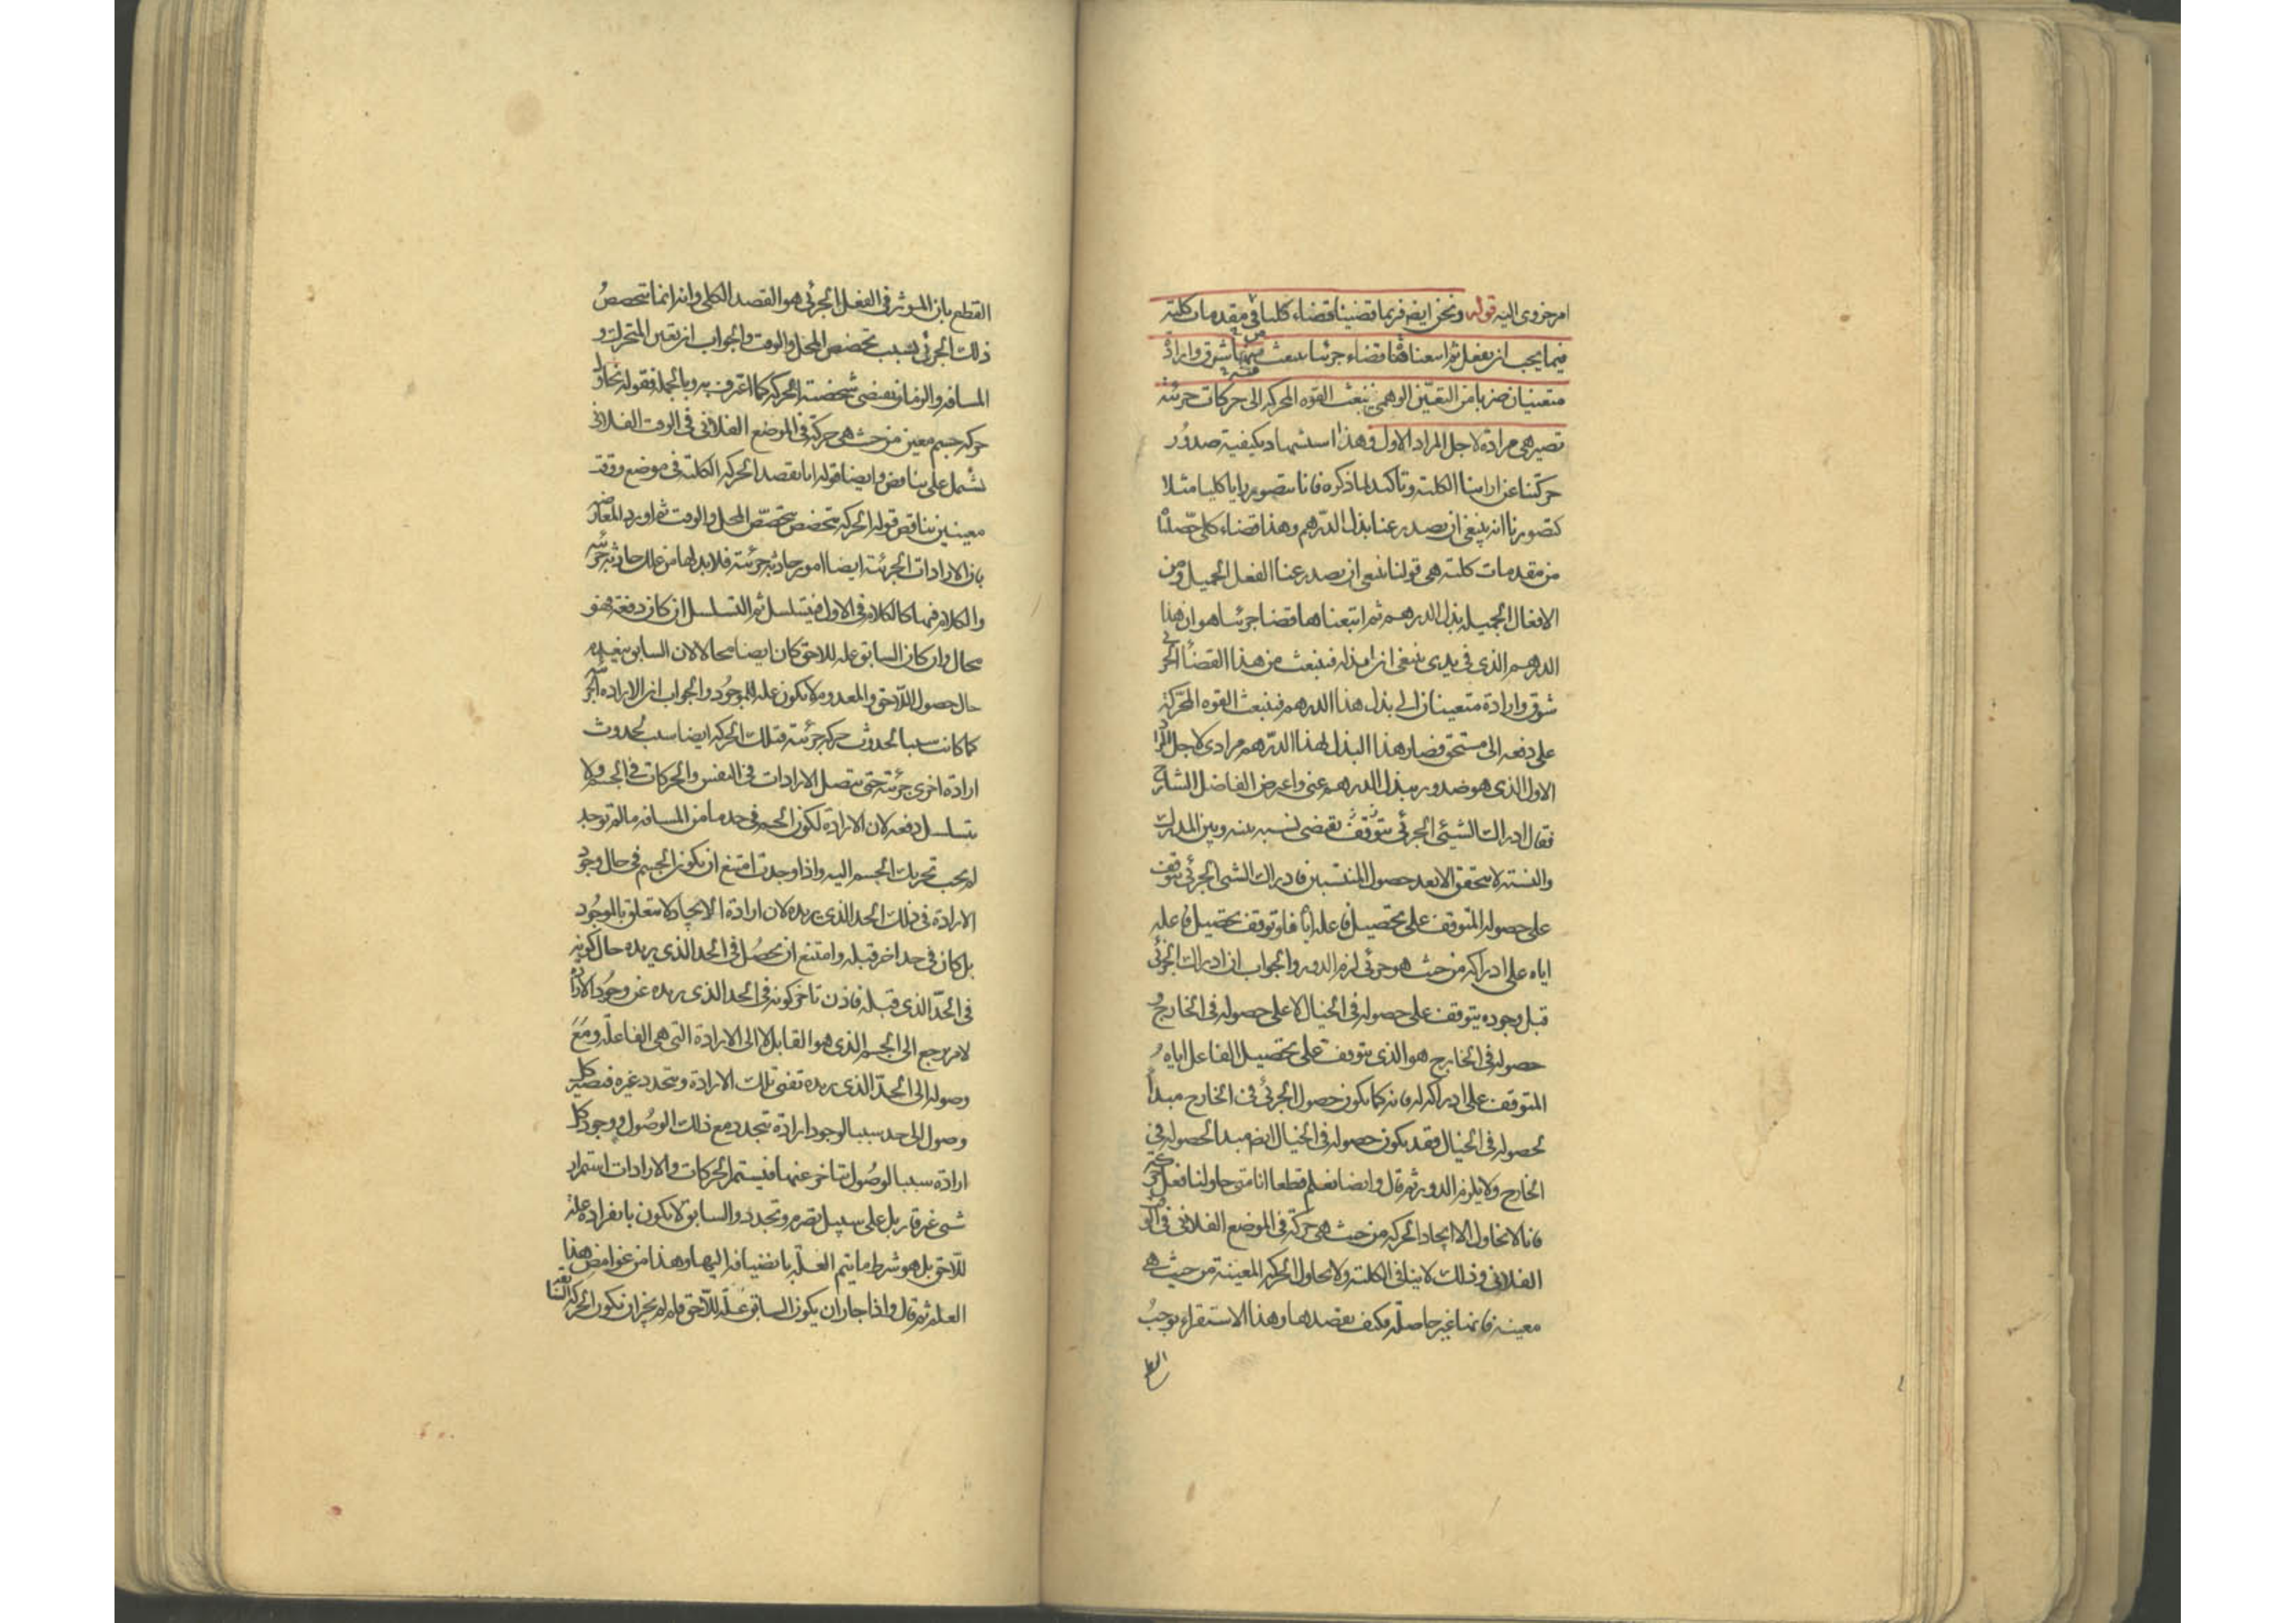 امر جزوى اليه قوله ونحن ايض فربما قضينا قضاء كليا فى مقدمات كلية
فيما يجب ان نفعل ثم اتبعنا قضاء جزئيا ينبعث منه شوق وارادة
متعينان ضربا من التعين الوهمى فتنبعث القوه المحركه الى حركات جزئية
تصير هى مرادة لاجل المراد الاول وهذا استشهاد بكيفية صدور
حركتنا عن ارائنا الكلية وتاكيد لما ذكره فانا نتصور رايا كليا مثلا
كتصورنا انه ينبغى ان يصدر عنا بذل الدرهم وهذا قضاء كلى حصلناه
من مقدمات كلية هى قولنا ينبغى ان يصدر عنا الفعل الجميل ومن
الافعال الجميله بذل الدرهم ثم اتبعناها قضا جزئيا هو ان هذا
الدرهم الذى فى يدى ينبغى ان ابذله فينبعث من هذا القضاء الجزئى
شوق وارادة متعينان الى بذل هذا الدرهم فتنبعث القوه المحركة
على دفعه الى مستحق فصار هذا البذل لهذا الدرهم مرادى لاجل المراد
الاول الذى هو صدور بذل الدرهم عنى واعترض الفاضل الشارح
فقال ادراك الشئى الجزئى يقتضى نسبه بينه وبين المدرك
والنسبة لا تتحقق الا بعد حصول المنتسبين فادراك الشئ الجزئى يتوقف
على حصوله المتوقف على تحصيل فاعله اياه فلو توقف تحصيل فاعله
اياه على ادراكه من حيث هو جزئى لزم الدور والجواب ان ادراك الجزئى
قبل وجوده يتوقف على حصوله فى الخيال لا على حصوله فى الخارج و
حصوله فى الخارج هو الذى يتوقف على تحصيل الفاعل اياه
المتوقف على ادراكه له فانه كما يكون حصول الجزئى فى الخارج مبدأ
لحصوله فى الخيال فقد يكون حصوله فى الخيال ايض مبدا لحصوله فى
الخارج ولا يلزم الدور ثم قال وايضا نعلم قطعا انا متى حاولنا فعل حركة
فانا لا نحاول الا ايجاد الحركه من حيث هى حركة فى الموضع الفلانى فى الوقت
الفلانى وذلك لا ينافى الكلية ولا نحاول الحركه المعينة من حيث هى
معينه فانها غير حاصلة فكيف نقصدها وهذا الاستقراء يوجب
القطع
القطع بان الموثر فى الفعل الجزئى هو القصد الكلى وانه انما تخصص
ذلك الجزئى بسبب تخصص المحل والوقت والجواب ان تعين المتحرك و
المسافه والزمان يقتضى شخصية الحركه كما اعترف به وبالجمله فقوله نحاول
حركه جسم معين من حيث هى حركة فى الموضع الفلانى فى الوقت الفلانى
تشمل على تناقض وايضا قوله انا نقصد الحركه الكلية فى موضع ووقت
معينين يناقض قوله الحركه تتخصص بتخصص المحل والوقت ثم اورد المعارضه
بان الارادات الجزئية ايضا امور حادثه جزئية فلا بد لها من علل حادثه جزئيه
والكلام فيها كالكلام فى الاول فيتسلسل ثم التسلسل ان كان دفعة فهو
محال وان كان السابق علة للاحق كان ايضا محالا لان السابق ينعدم
حال حصول اللاحق والمعدوم لا يكون علة للموجود والجواب ان الاراده الجزئية
كما كانت سببا لحدوث حركه جزئية فتلك الحركه ايضا سبب لحدوث
ارادة اخرى جزئية حتى تتصل الارادات فى النفس والحركات فى الجسم ولا
يتسلسل دفعه لان الارادة لكون الجسم فى حد ما من المسافه ما لم توجد
لم يجب تحريك الجسم اليه واذا وجدت امتنع ان يكون الجسم فى حال وجود
الارادة فى ذلك الحد الذى يريده لان ارادة الايجاد لا تتعلق بالموجود
بل كان فى حد اخر قبله وامتنع ان يحصل فى الحد الذى يريده حال كونه
فى الحد الذى قبله فاذن تاخر كونه فى الحد الذى يريده عن وجود الارادة
لامر يرجع الى الجسم الذى هو القابل لا الى الارادة التى هى الفاعلة ومع
وصوله الى الحد الذى يريده تفنى تلك الارادة ويتجدد غيره فتصير كل
وصول الى حد سببا لوجود ارادة تتجدد مع ذلك الوصول ووجود كل
ارادة سببا لوصول يتاخر عنها فيستمر الحركات والارادات استمرار
شى غير قار بل على سبيل تصرم وتجدد والسابق لا يكون بانفراده علة
للاحق بل هو شرط ما يتم العلة بانضيافه اليها وهذا من غوامض هذا
العلم ثم قال واذا جاز ان يكون السابق علة للاحق فلم لم يجز ان تكون الحركة السابقه